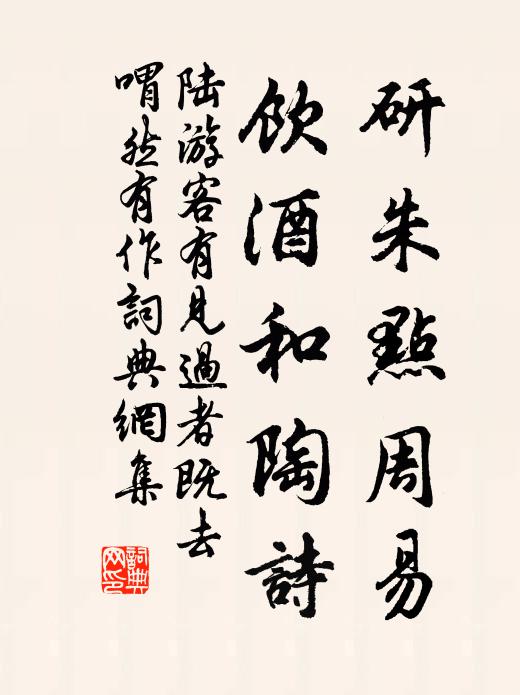 研朱點周易
飲酒和陶詩
陆游客有見過者既去
喟然有作詞典網集
詞典网印